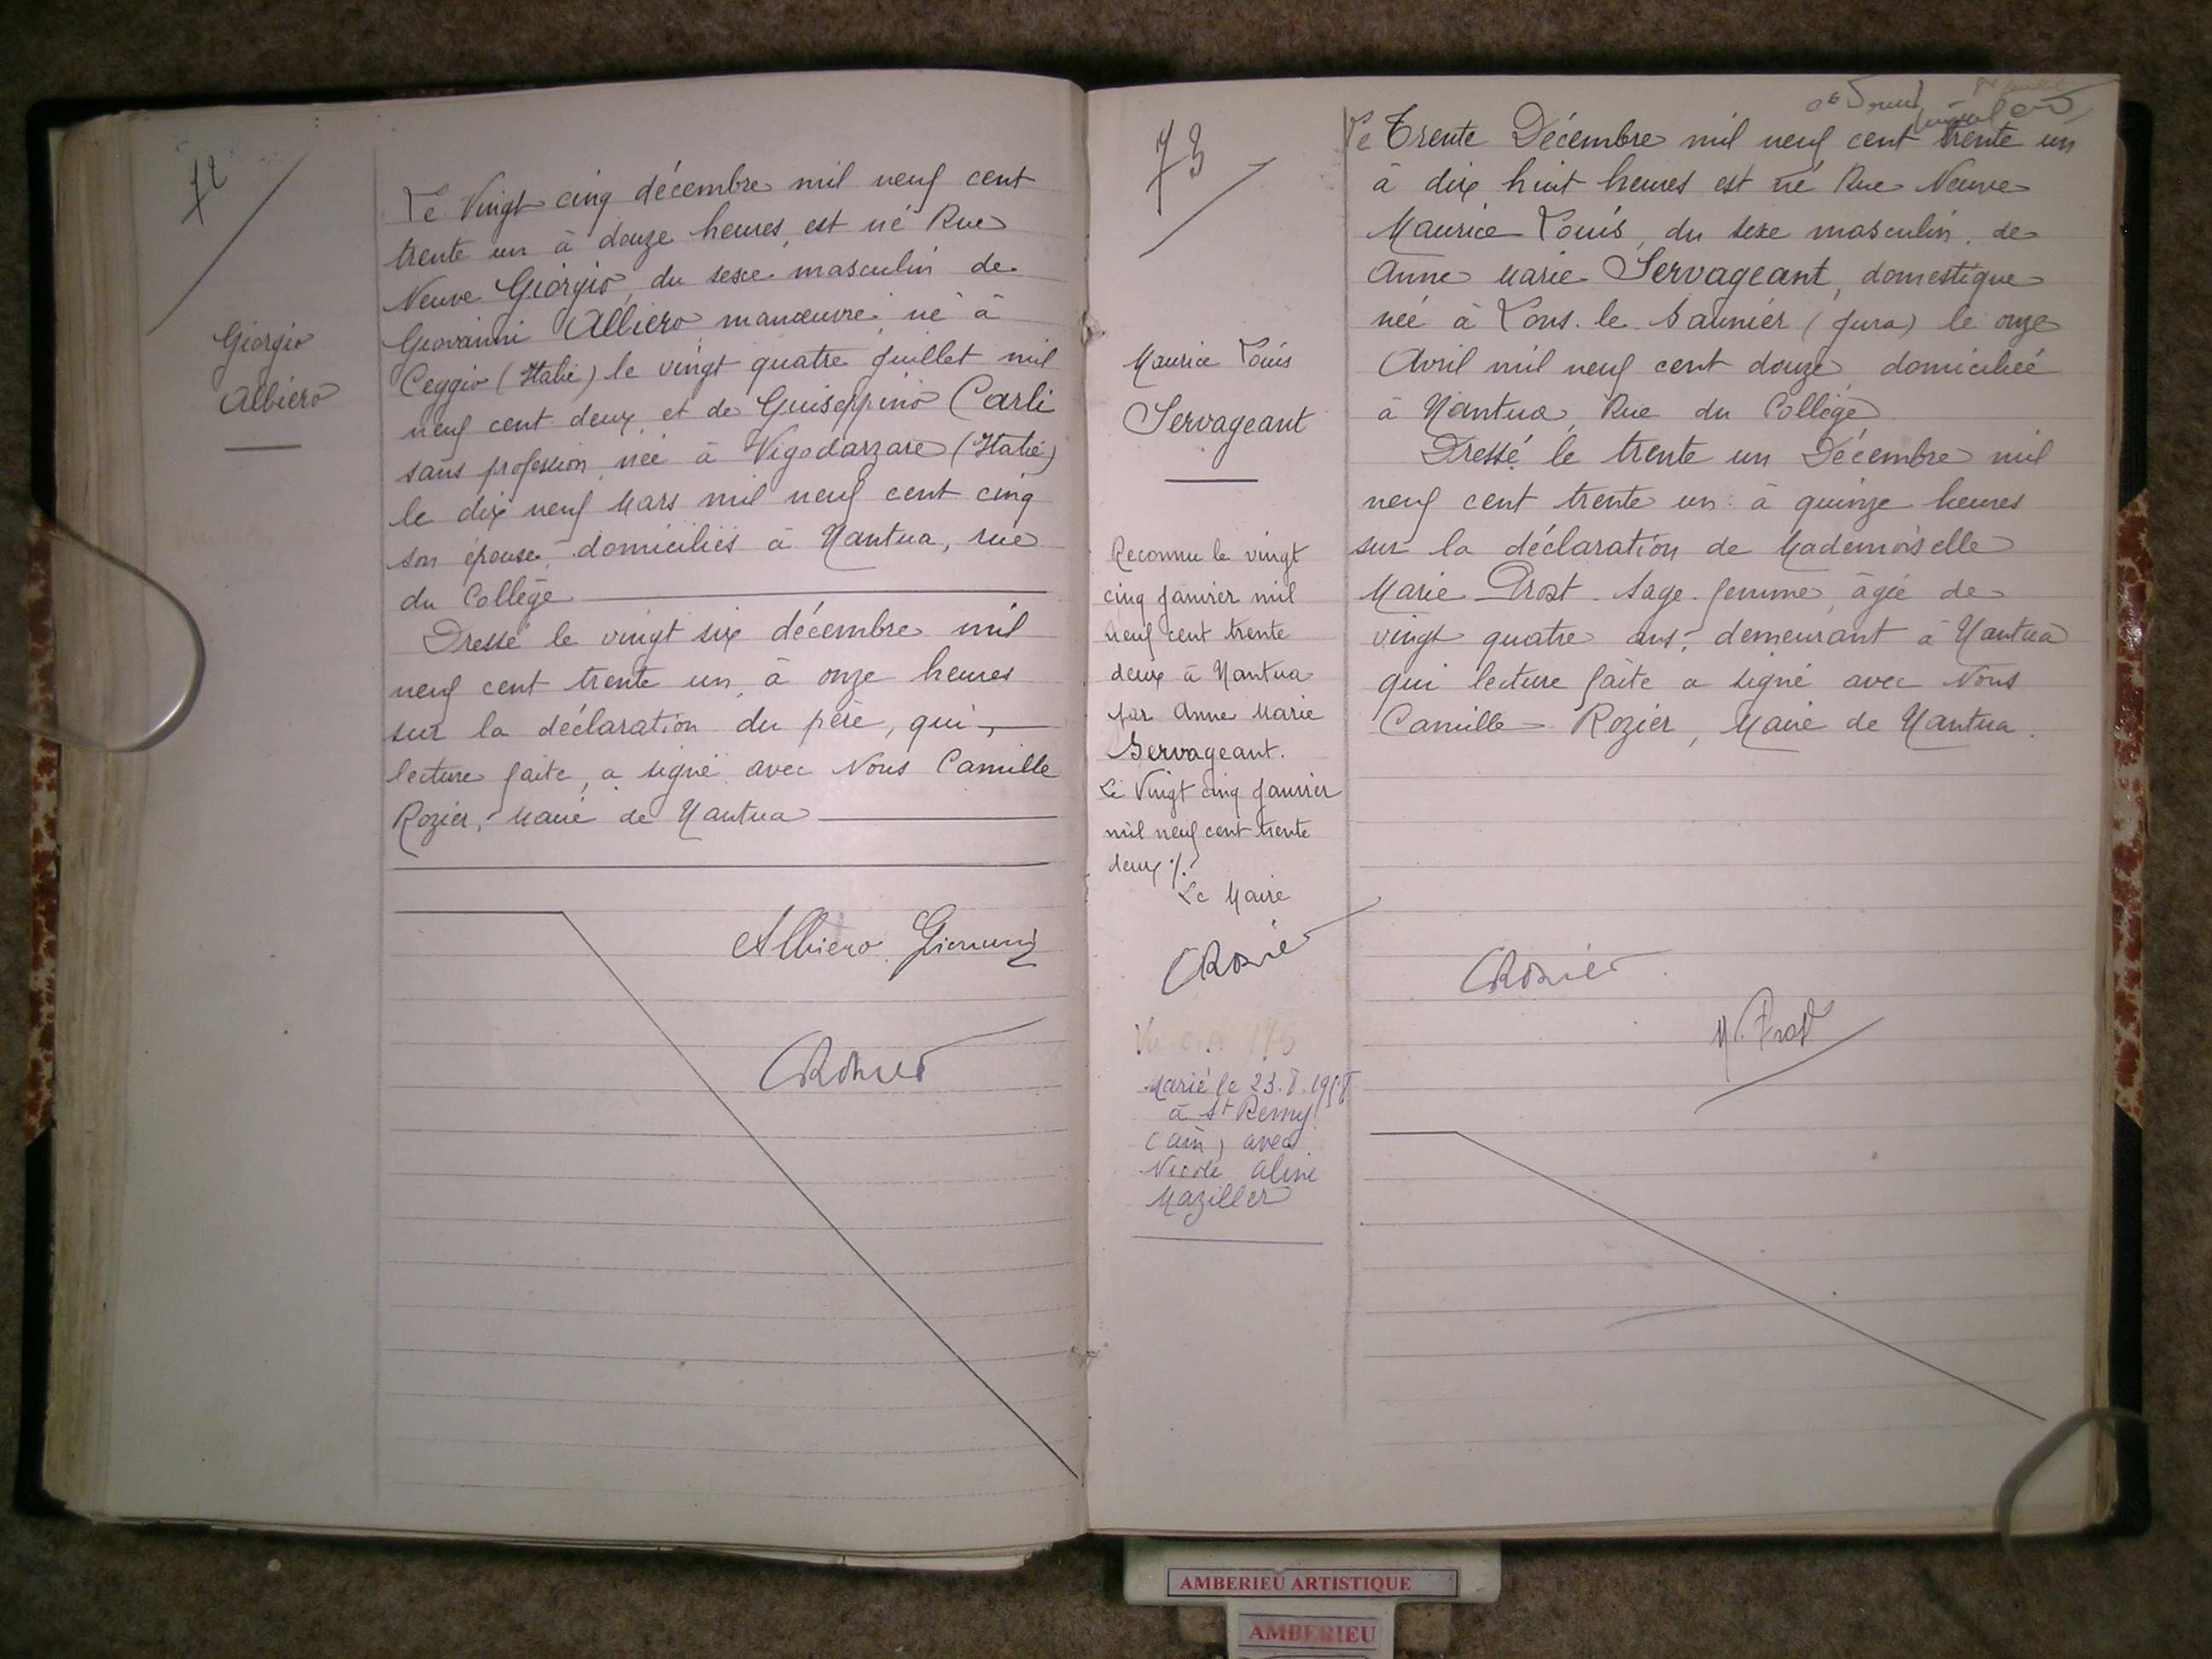 72
Giorgio
Albiero
Le Vingt cinq décembre mil neuf cent
trente un à douze heures, est né Rue
Neuve Giorgio, du sexe masculin de
Giovanni Albiero manœuvre, né à
Ceggio (Italie) le vingt quatre Juillet mil
neuf cent deux et de Guiseppino Carli
sans profession née à Vigodarzare (Italie)
le dix neuf Mars mil neuf cent cinq
son épouse, domiciliés à Nantua, rue
du Collège
Dressé le vingt six décembre mil
neuf cent trente un, à onze heures
sur la déclaration du père, qui,
lecture faite, a signé avec Nous Camille
Rozier, Maire de Nantua
Albiero Giovanni
CRozier
73
Maurice Louis
Servageant
Reconnu le vingt
cinq Janvier mil
neuf cent trente
deux à Nantua
par Anne Marie
Servageant.
Le Vingt cinq Janvier
mil neuf cent trente
deux ./.
Le Maire
CRozier
Marié le 23.8.1958
à St Remy
(Ain) avec
Nicole Aline
Maziller
Le Trente Décembre mil neuf cent trente un
à dix huit heures est né Rue Neuve
Maurice Louis, du sexe masculin, de
Anne Marie Servageant, domestique
née à Lons.le.Saunier (Jura) le onze
Avril mil neuf cent douze, domiciliée
à Nantua, Rue du Collège
Dressé le trente un Décembre mil
neuf cent trente un à quinze heures
sur la déclaration de Mademoiselle
Marie Prost. Sage.femme, âgée de
vingt quatre ans, demeurant à Nantua
qui lecture faite a signé avec Nous
Camille Rozier, Maire de Nantua.
CRozier
M. Prost
AMBERIEU ARTISTIQUE
AMBERIEU